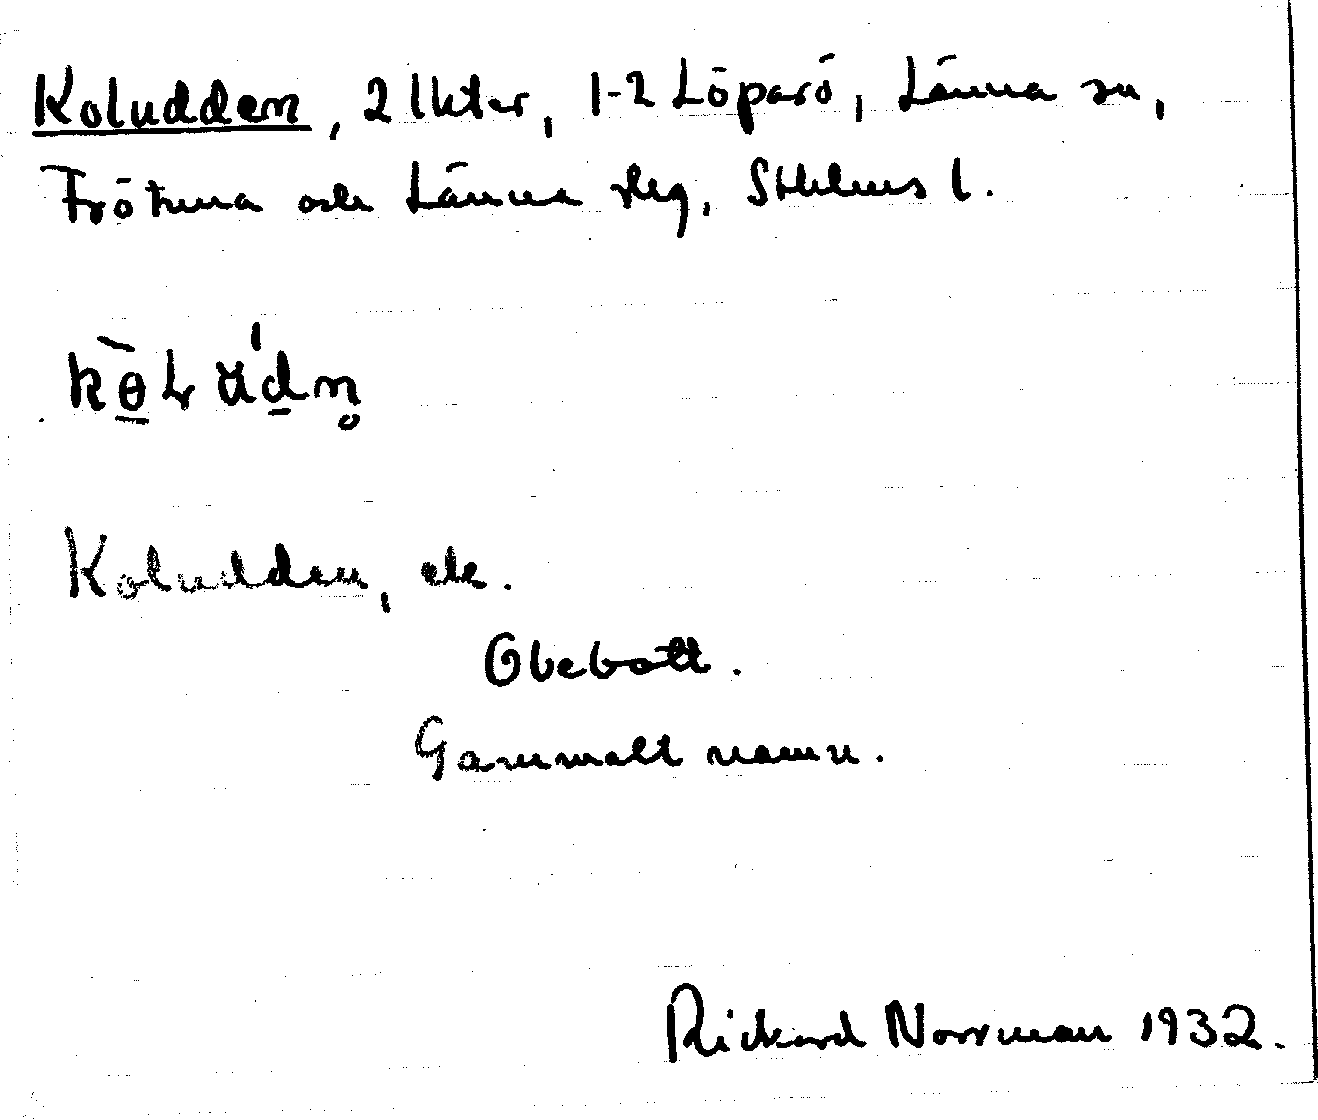 Koludden, 2 lhter, 1-2 Löparö, Länna sn,
Frötuna och Länna skg, Sthlms l.
Koludden, ek.
Obebott.
Gammalt namn.
Rickard Norrman 1932.